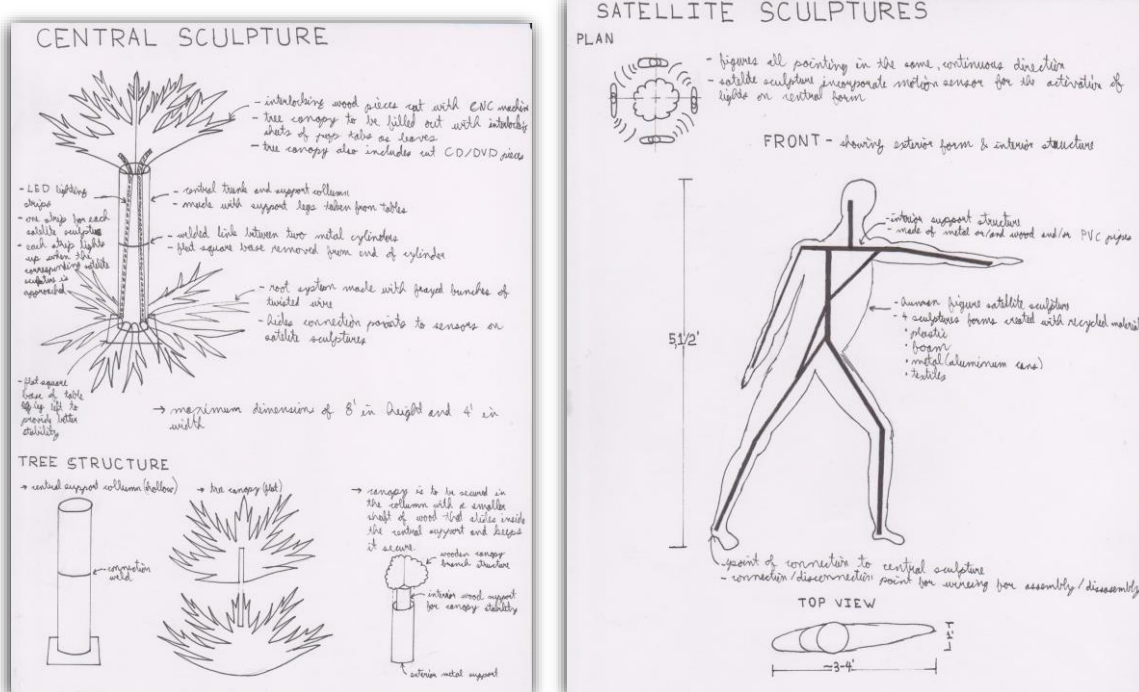 CENTRAL SCULPTURE
- interlocking wood pieces cut with CNC machine
- tree canopy to be filled out with interlockin
sheets of pop tabs as leaves
- tree canopy also includes cut CD/DVD pieces
- LED lighting
strips
- one strip for each
satelite sculpture
- each strip lights
up when the
corresponding satelite
sculpture is
approached
- central trunk and support collumn
- made with support legs taken from tables
- welded link between two metal cylinders
- flat square base removed from end of cylinder
- root system made with frayed bunches of
twisted wire
- hides connection points to sensors on
satelite sculptures
- flat square
base of table
leg is left to
provide better
stability
→ maximum dimension of 8' in height and 4' in
width
TREE STRUCTURE
→ central support collumn (hollow)
connection
weld
→ tree canopy (flat)
→ canopy is to be secured in
the column with a smaller
shaft of wood that slides inside
the central support and keeps
it secure.
wooden canopy
branch structure
interior wood support
for canopy stability
exterior metal support
SATELLITE SCULPTURES
PLAN
- figures all pointing in the same, continuous direction
- satelite sculpture incorporate motion sensor for the activation of
lights on central form
FRONT - showing exterior form & interior structure
5,1/2'
- interior support structure
- made of metal or/and wood and/or PVC pipes
- human figure satellite sculpture
- 4 sculptures forms created with recycled material
• plastic
• foam
• metal (aluminum cans)
• textiles
- point of connection to central sculpture
- connection/disconnection point for wireing for assembly/disassemb
TOP VIEW
≈3-4'